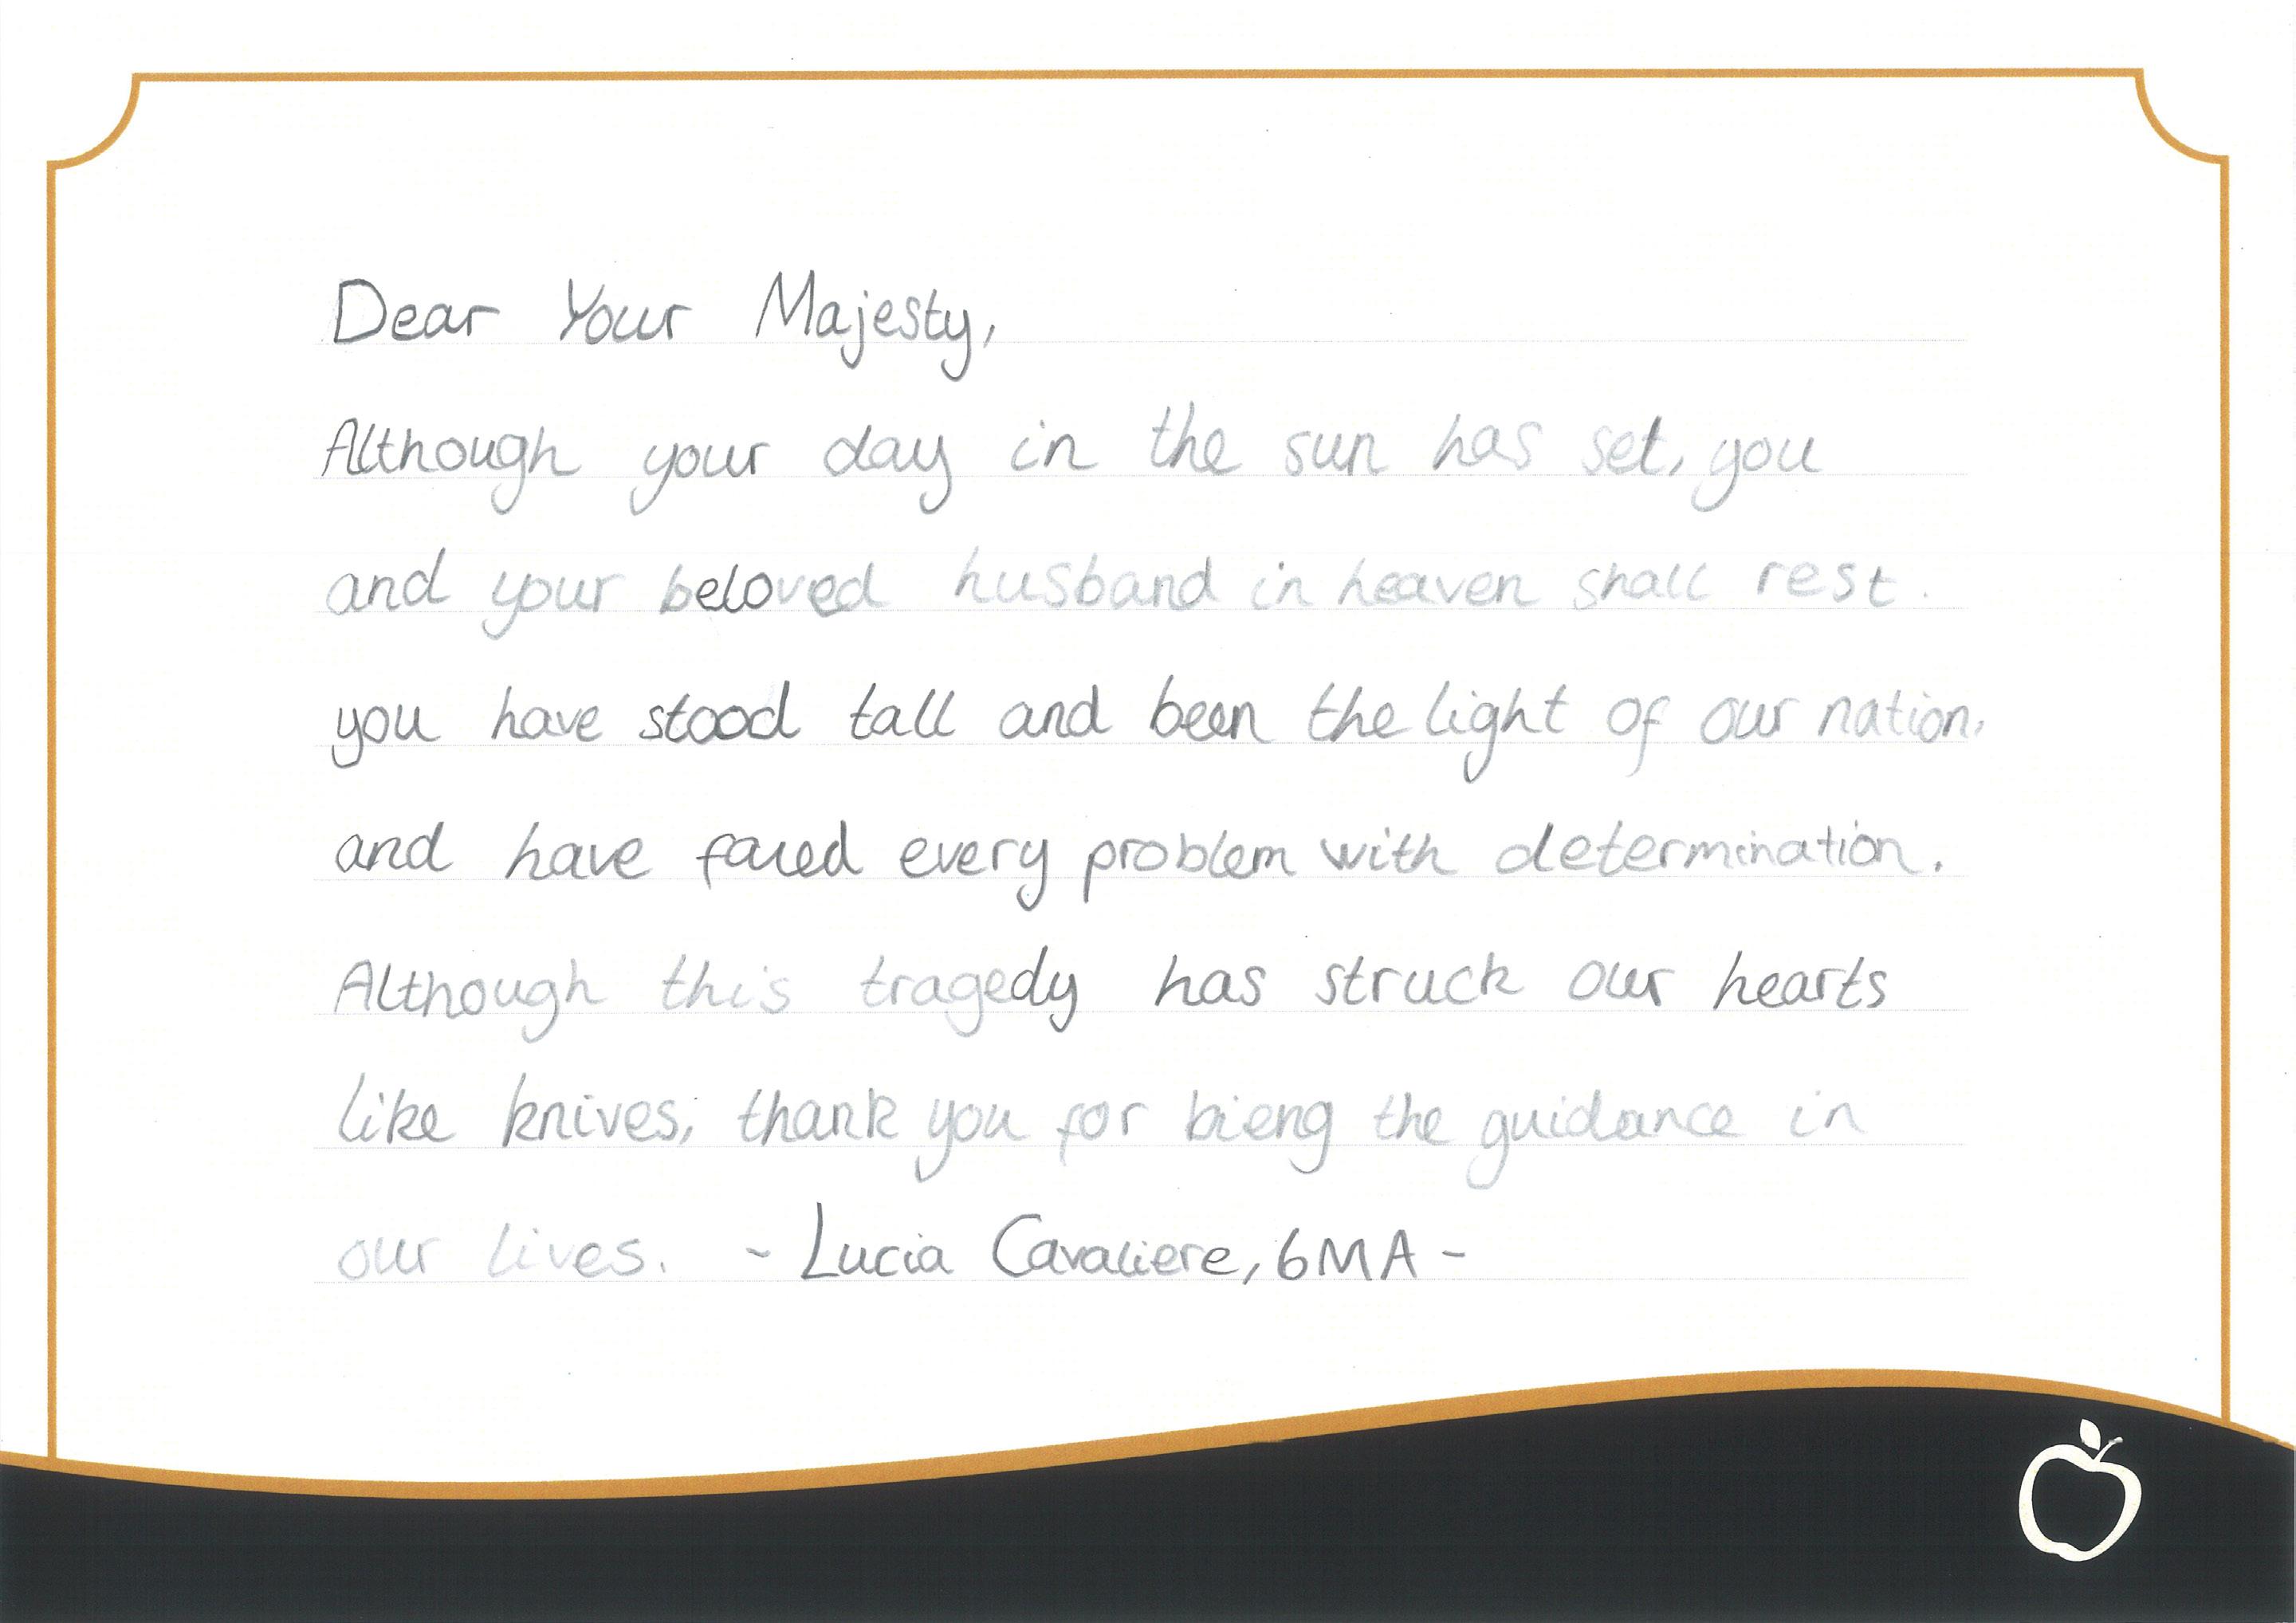 Dear Your Majesty,
Although your day in the sun has set, you
and your beloved husband in heaven shall rest.
you have stood tall and been the light of our nation,
and have faced every problem with determination.
Although this tragedy has struck our hearts
like knives; thank you for bieng the guidance in
our lives. ~ Lucia Cavaliere, 6MA ~